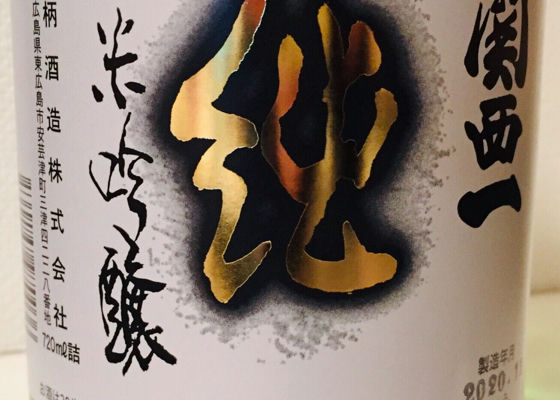 関西一
純
米吟醸
柄酒造株式会社
広島県東広島市安芸津町三津四二二八番地
720mℓ詰
製造年月
2020.1